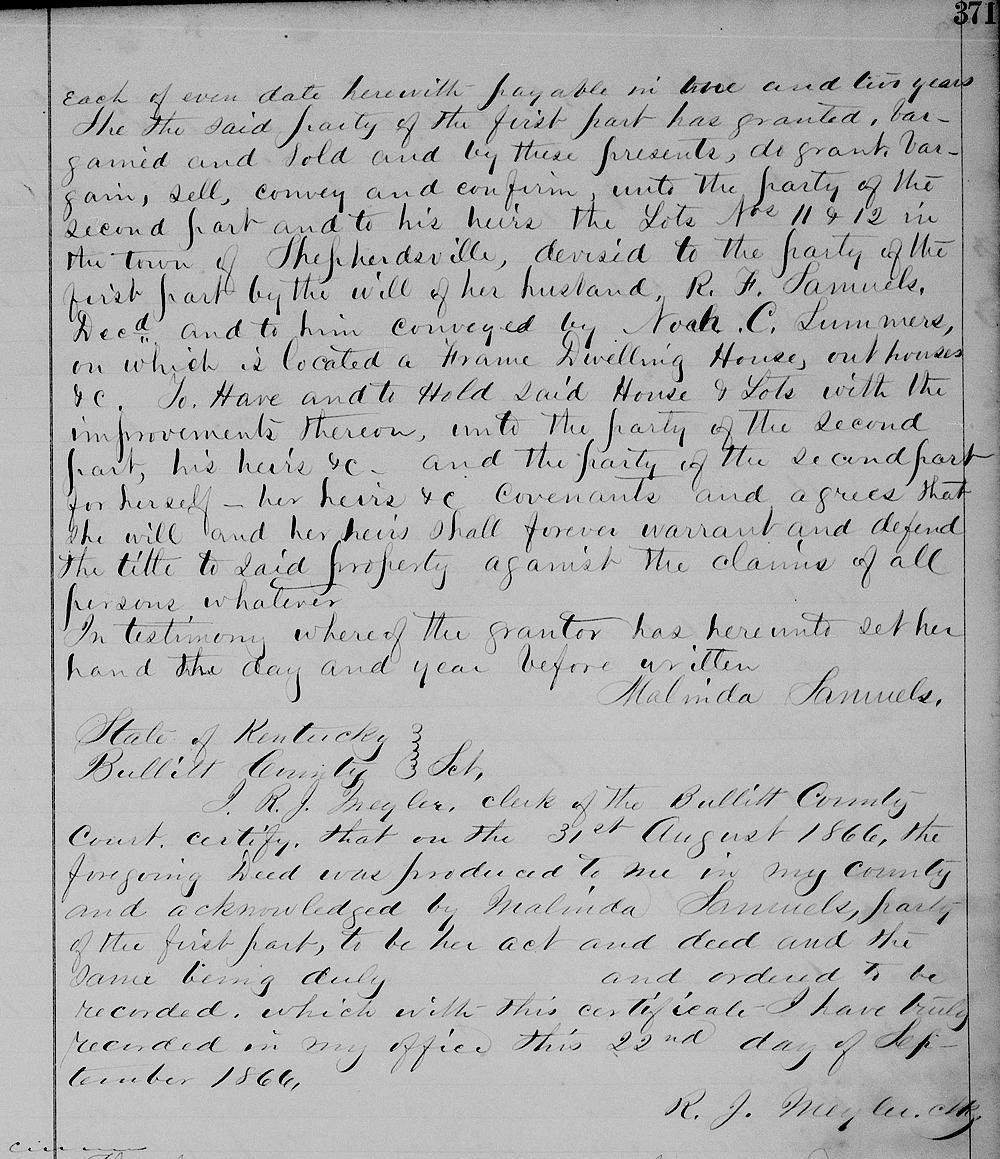 371
Each of even date herewith payable in one and two years
She the said party of the first part has granted, bar-
gained and sold and by these presents, do grant, bar-
gain, sell, convey and confirm, unto the party of the
second part and to his heirs the Lots Nos 11 & 12 in
the town of Shepherdsville, devised to the party of the
first part by the will of her husband, R. F. Samuels,
Decd. and to him conveyed by Noah C. Summers,
on which is located a Frame Dwelling House, outhouses
&c. To Have and to Hold said House & Lots with the
improvements thereon, unto the party of the second
part, his heirs &c - and the party of the second part
for herself - her heirs &c covenants and agrees that
she will and her heirs shall forever warrant and defend
the title to said property against the claims of all
persons whatever
In testimony whereof the grantor has hereunto set her
hand the day and year before written
Malinda Samuels.
State of Kentucky
Bullitt County } Sct,
I. R. J. Meyler, clerk of the Bullitt County
Court. certify, that on the 31st August 1866, the
foregoing Deed was produced to me in my county
and acknowledged by Malinda Samuels, party
of the first part, to be her act and deed and the
same being duly and ordered to be
recorded. which with this certificate I have truly
recorded in my office this 22nd day of Sep-
tember 1866,
R. J. Meyler. clk,